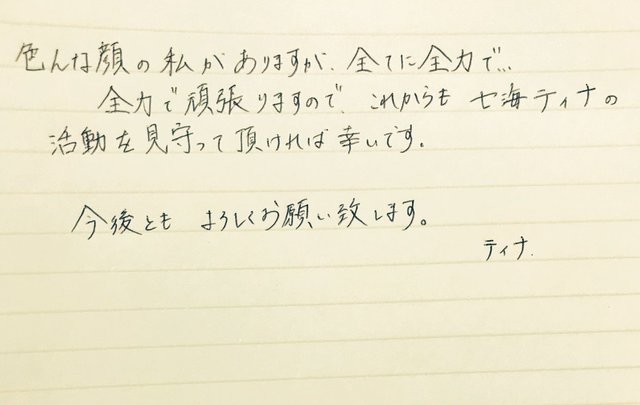 色んな顔の私がありますが、全てに全力で…
全力で頑張りますので、これからも七海ティナの
活動を見守って頂ければ幸いです。
今後ともよろしくお願い致します。
ティナ.